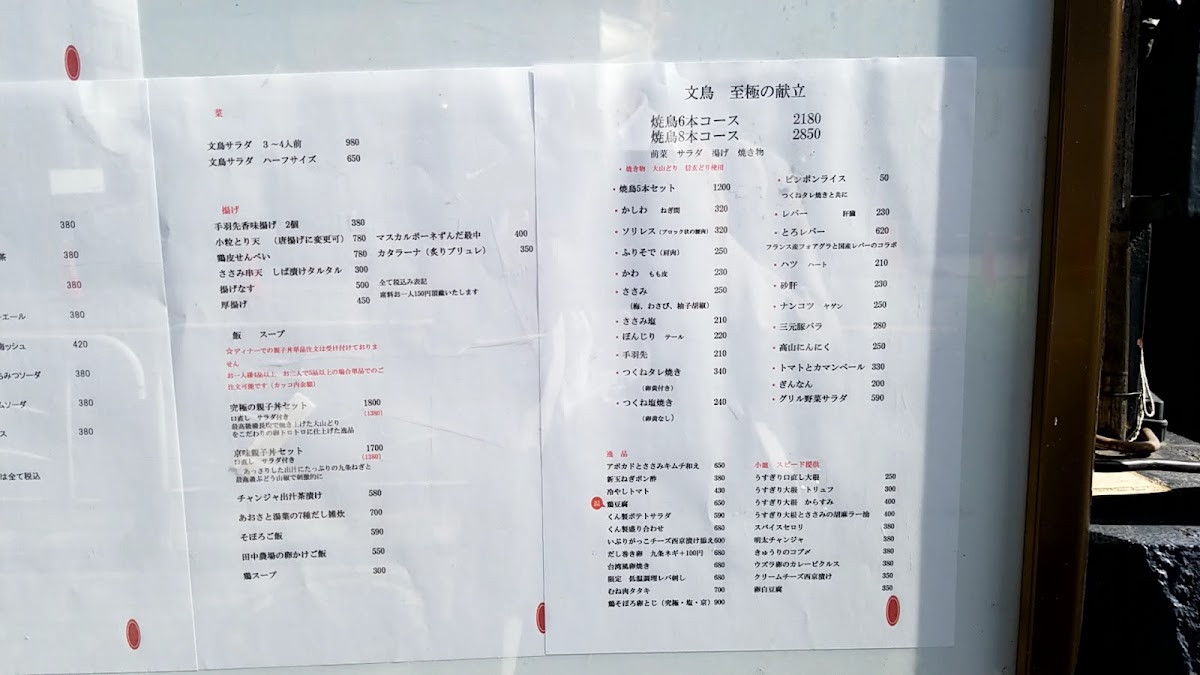 380
茶 380
380
エール 380
420
みつソーダ 380
ムソーダ 380
ス 380
は全て税込
菜
文鳥サラダ 3～4人前 980
文鳥サラダ ハーフサイズ 650
揚げ
手羽先香味揚げ 2個 380
小粒とり天 （唐揚げに変更可） 780
鶏皮せんべい 780
ささみ串天 しば漬けタルタル 300
揚げなす 500
厚揚げ 450
マスカルポーネずんだ最中 400
カタラーナ（炙りブリュレ） 350
全て税込み表記
席料お一人150円頂戴いたします
飯 スープ
☆ディナーでの親子丼単品注文は受け付けておりま
せん
お一人様4品以上 お二人で5品以上の場合単品でのご
注文可能です（カッコ内金額）
究極の親子丼セット 1800
口直し サラダ付き (1380)
最高級備長炭で焼き上げた大山どり
をこだわりの卵トロトロに仕上げた逸品
京味親子丼セット 1700
口直し サラダ付き (1380)
あっさりした出汁にたっぷりの九条ねぎと
最後ぶどう山椒で刺激的に
チャンジャ出汁茶漬け 580
あおさと湯葉の7種だし雑炊 700
そぼろご飯 590
田中農場の卵かけご飯 550
鶏スープ 300
文鳥 至極の献立
焼鳥6本コース 2180
焼鳥8本コース 2850
前菜 サラダ 揚げ 焼き物
・焼き物 大山どり 信玄どり使用
・焼鳥5本セット 1200
・かしわ ねぎ間 320
・ソリレス（ブロック状の腰肉） 320
・ふりそで（肩肉） 250
・かわ もも皮 230
・ささみ 250
（梅、わさび、柚子胡椒）
・ささみ塩 210
・ぼんじり テール 220
・手羽先 210
・つくねタレ焼き 340
（卵黄付き）
・つくね塩焼き 240
（卵黄なし）
・ピンポンライス 50
つくねタレ焼きと共に
・レバー 肝臓 230
・とろレバー 620
フランス産フォアグラと国産レバーのコラボ
・ハツ ハート 210
・砂肝 230
・ナンコツ ヤゲン 250
・三元豚バラ 280
・高山にんにく 250
・トマトとカマンベール 330
・ぎんなん 200
・グリル野菜サラダ 590
逸 品
アボカドとささみキムチ和え 650
新玉ねぎポン酢 380
冷やしトマト 430
鶏豆腐 650
くん製ポテトサラダ 590
くん製盛り合わせ 680
いぶりがっこチーズ西京漬け添え 600
だし巻き卵 九条ネギ＋100円 680
台湾風卵焼き 680
限定 低温調理レバ刺し 680
むね肉タタキ 700
鶏そぼろ卵とじ（究極・塩・京） 900
小皿 スピード提供
うすぎり口直し大根 250
うすぎり大根 トリュフ 300
うすぎり大根 からすみ 400
うすぎり大根とささみの胡麻ラー油 400
スパイスセロリ 380
明太チャンジャ 380
きゅうりのコブメ 380
ウズラ卵のカレーピクルス 380
クリームチーズ西京漬け 350
卵白豆腐 350